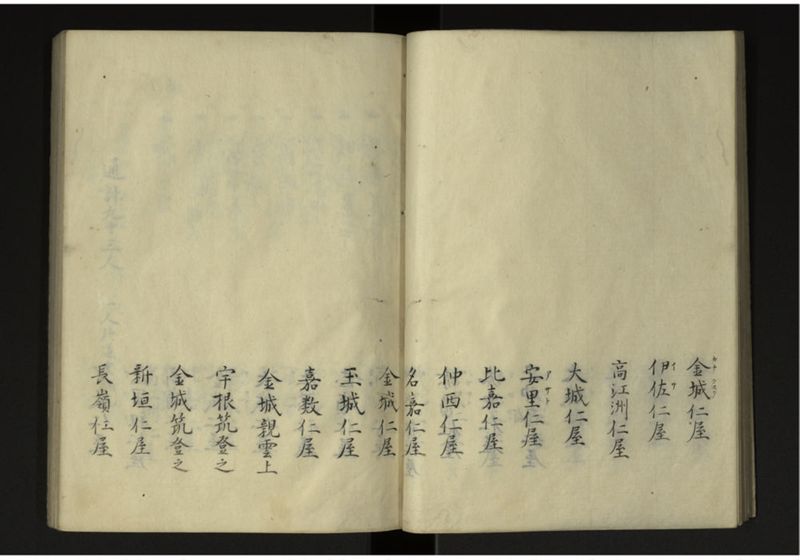 金城仁屋
カナ グスク
伊佐仁屋
イサ
高江洲仁屋
大城仁屋
安里仁屋
アサト
比嘉仁屋
仲西仁屋
名嘉仁屋
金城仁屋
玉城仁屋
嘉数仁屋
金城親雲上
宇根筑登之
金城筑登之
新垣仁屋
長嶺仁屋